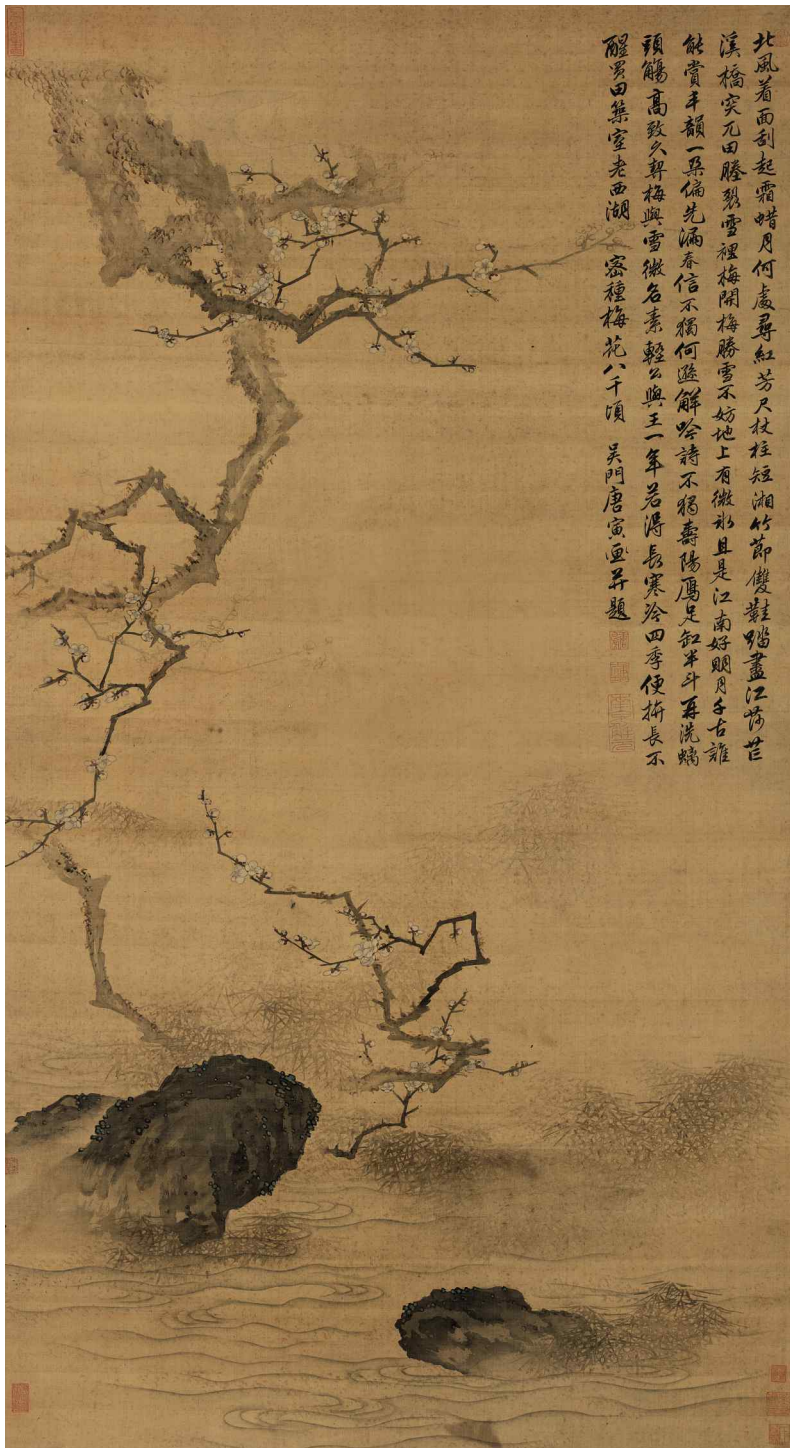 北風着面刮起霜蜡月何處尋紅芳尺杖拄短湘竹節雙鞋踏盡江莎芒
溪橋突兀田塍裂雪裡梅開梅勝雪不妨地上有微冰且是江南好明月千古誰
能賞丰韻一朶偏先漏春信不獨何遜解吟詩不獨壽陽
足缸半斗再洗螭
頭觴高致久契梅與雪微名素輕公與王一年若得長寒冷四季便拚長不
醒買田築室老西湖密種梅花八千頃 吳門唐寅画并題